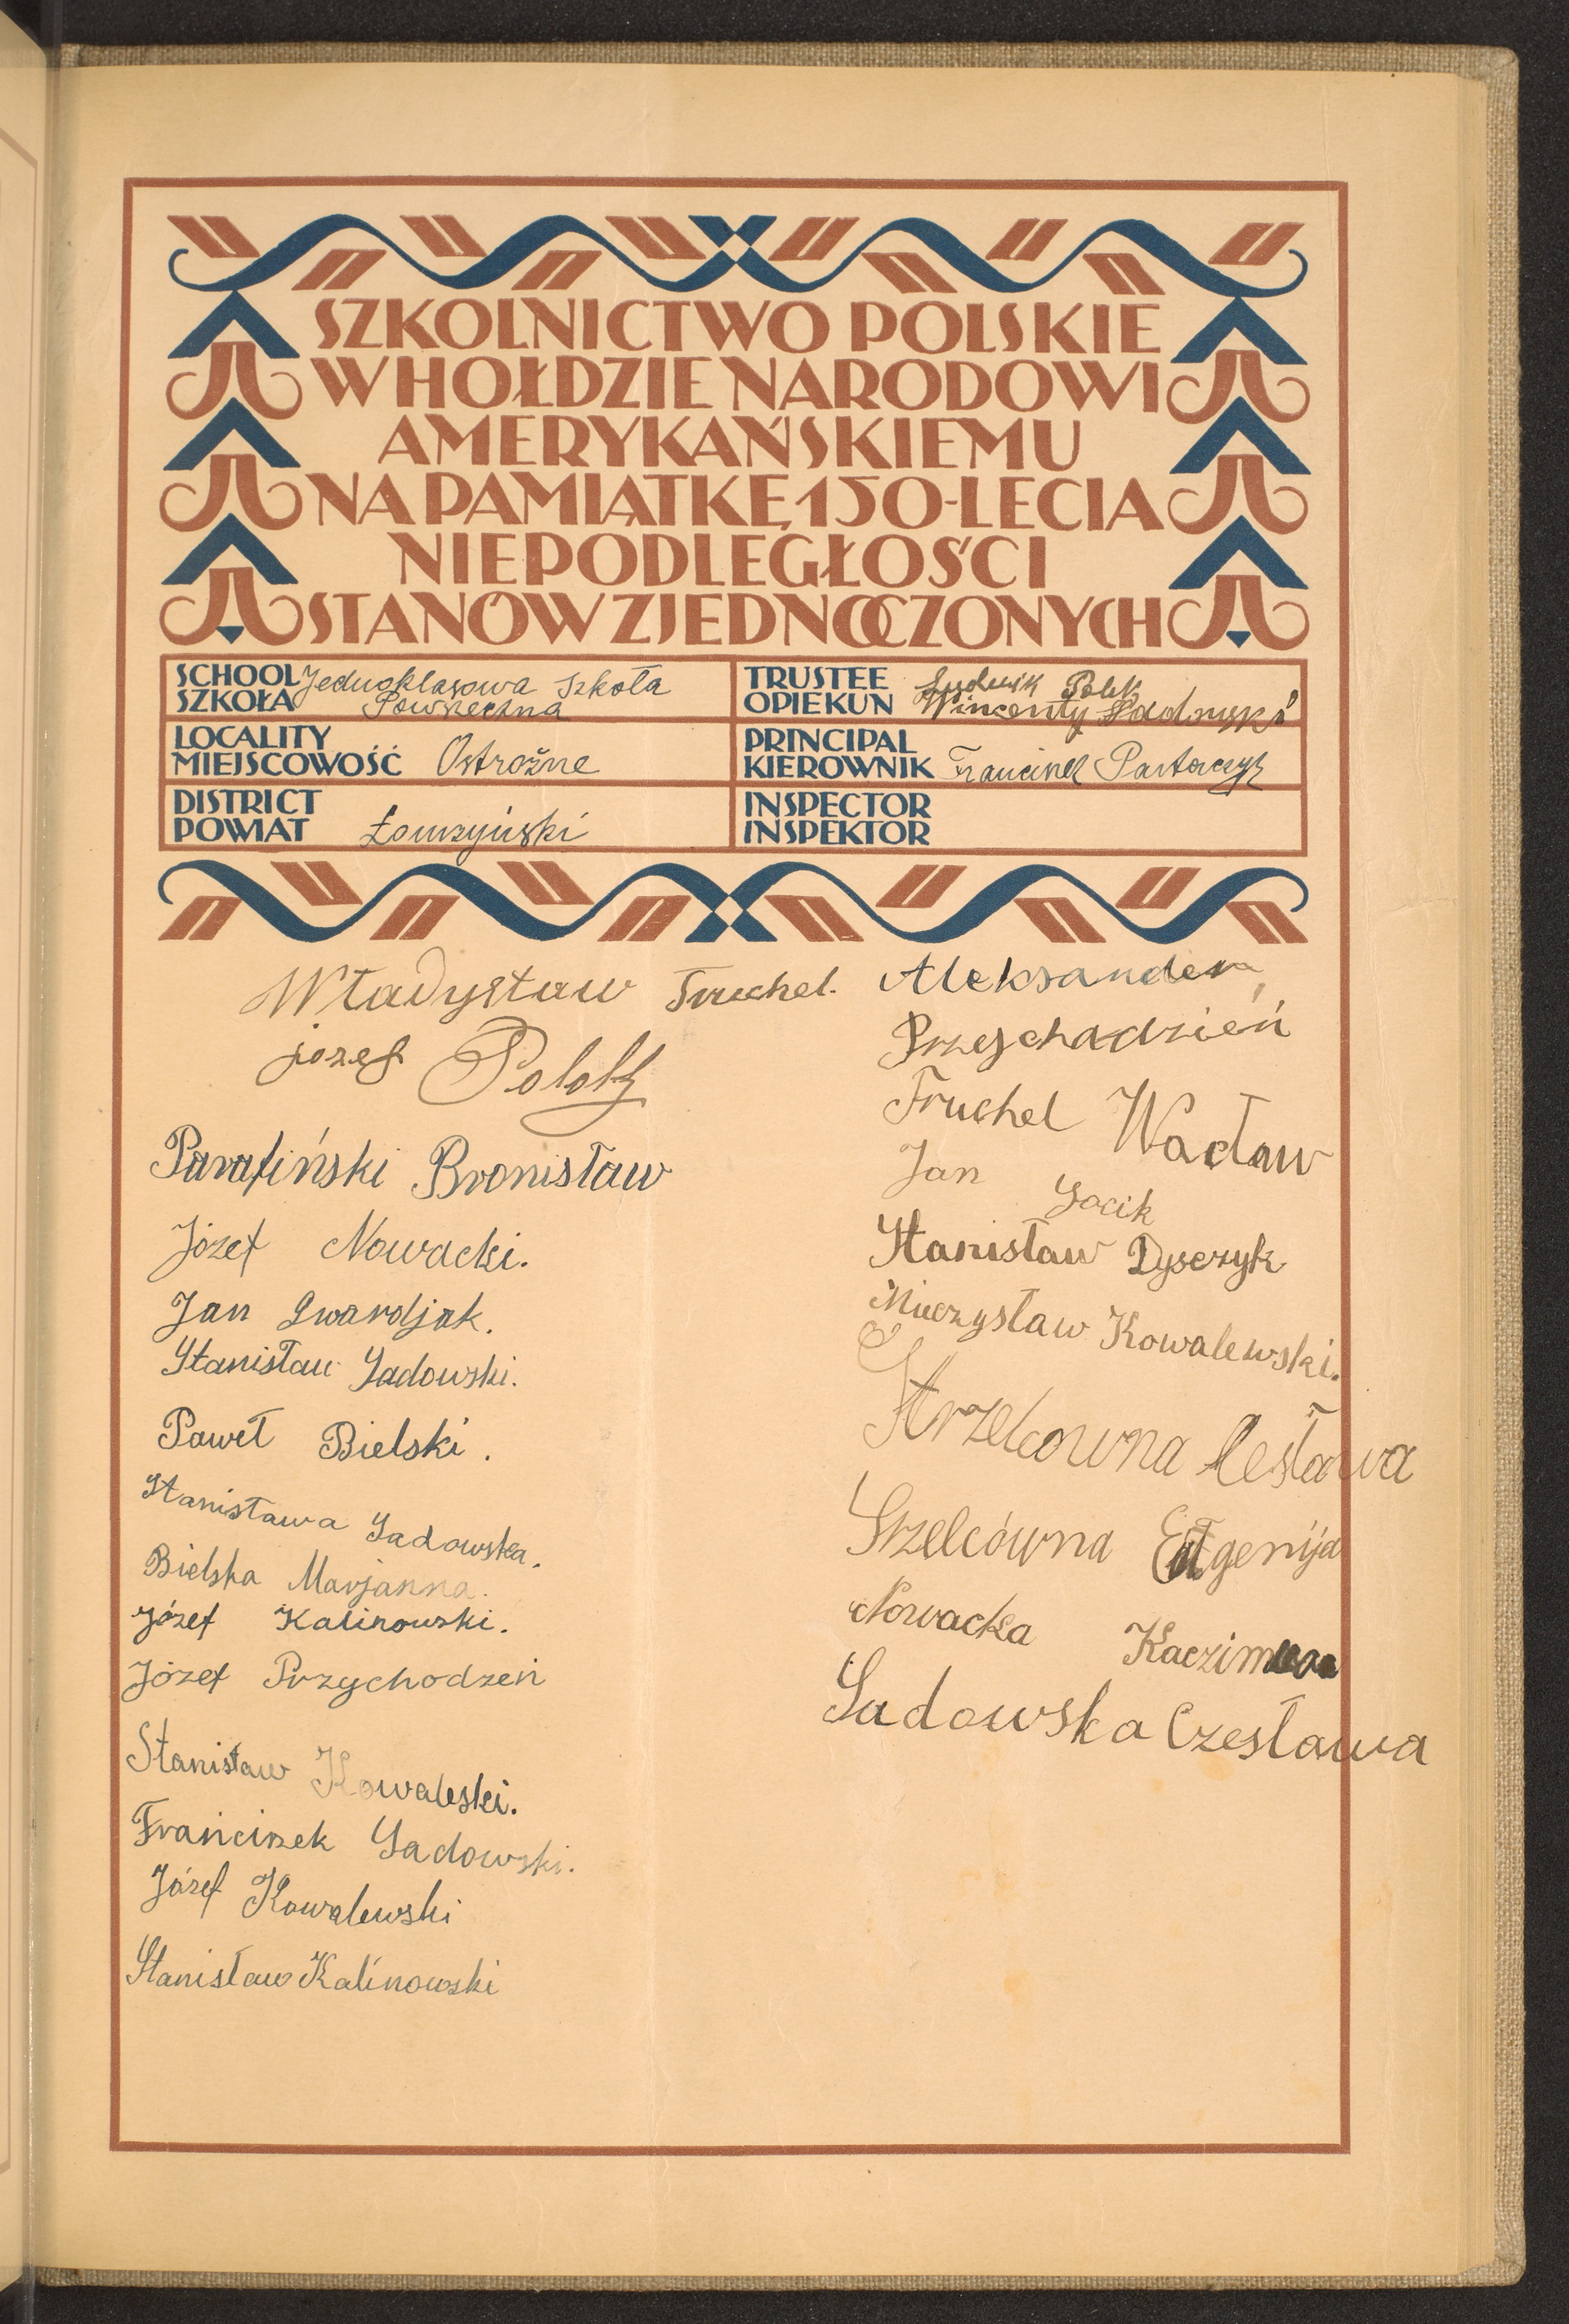 SZKOLNICTWO POLSKIE
W HOŁDZIE NARODOWI
AMERYKAŃSKIEMU
NA PAMIĄTKĘ 150-LECIA
NIEPODLEGŁOŚCI
STANÓW ZJEDNOCZONYCH
SCHOOL
SZKOŁA
Jednoklasowa Szkoła
Powszechna
TRUSTEE
OPIEKUN
Ludwik Polek
Wincenty Sadowski
LOCALITY
MIEJSCOWOŚĆ
Ostrożne
PRINCIPAL
KIEROWNIK
Franciszek Pastorczyk
DISTRICT
POWIAT
Łomżyński
INSPECTOR
INSPEKTOR
Władysław Truchel.
józef Polok
Parafiński Bronisław
Józef Nowacki.
Jan Gwardjak.
Stanisław Sadowski.
Paweł Bielski.
Stanisława Sadowska.
Bielska Marjanna.
Józef Kalinowski.
Józef Przychodzeń
Stanisław Kowaleski.
Franciszek Sadowski.
Józef Kowalewski
Stanisław Kalinowski
Aleksander
Przychadzień
Truchel Wacław
Jan Socik
Stanisław Dysczyk
Mieczysław Kowalewski.
Strzelcowna Cesława
Strzelcówna Eugenija
Nowacka
Sadowska Czesława